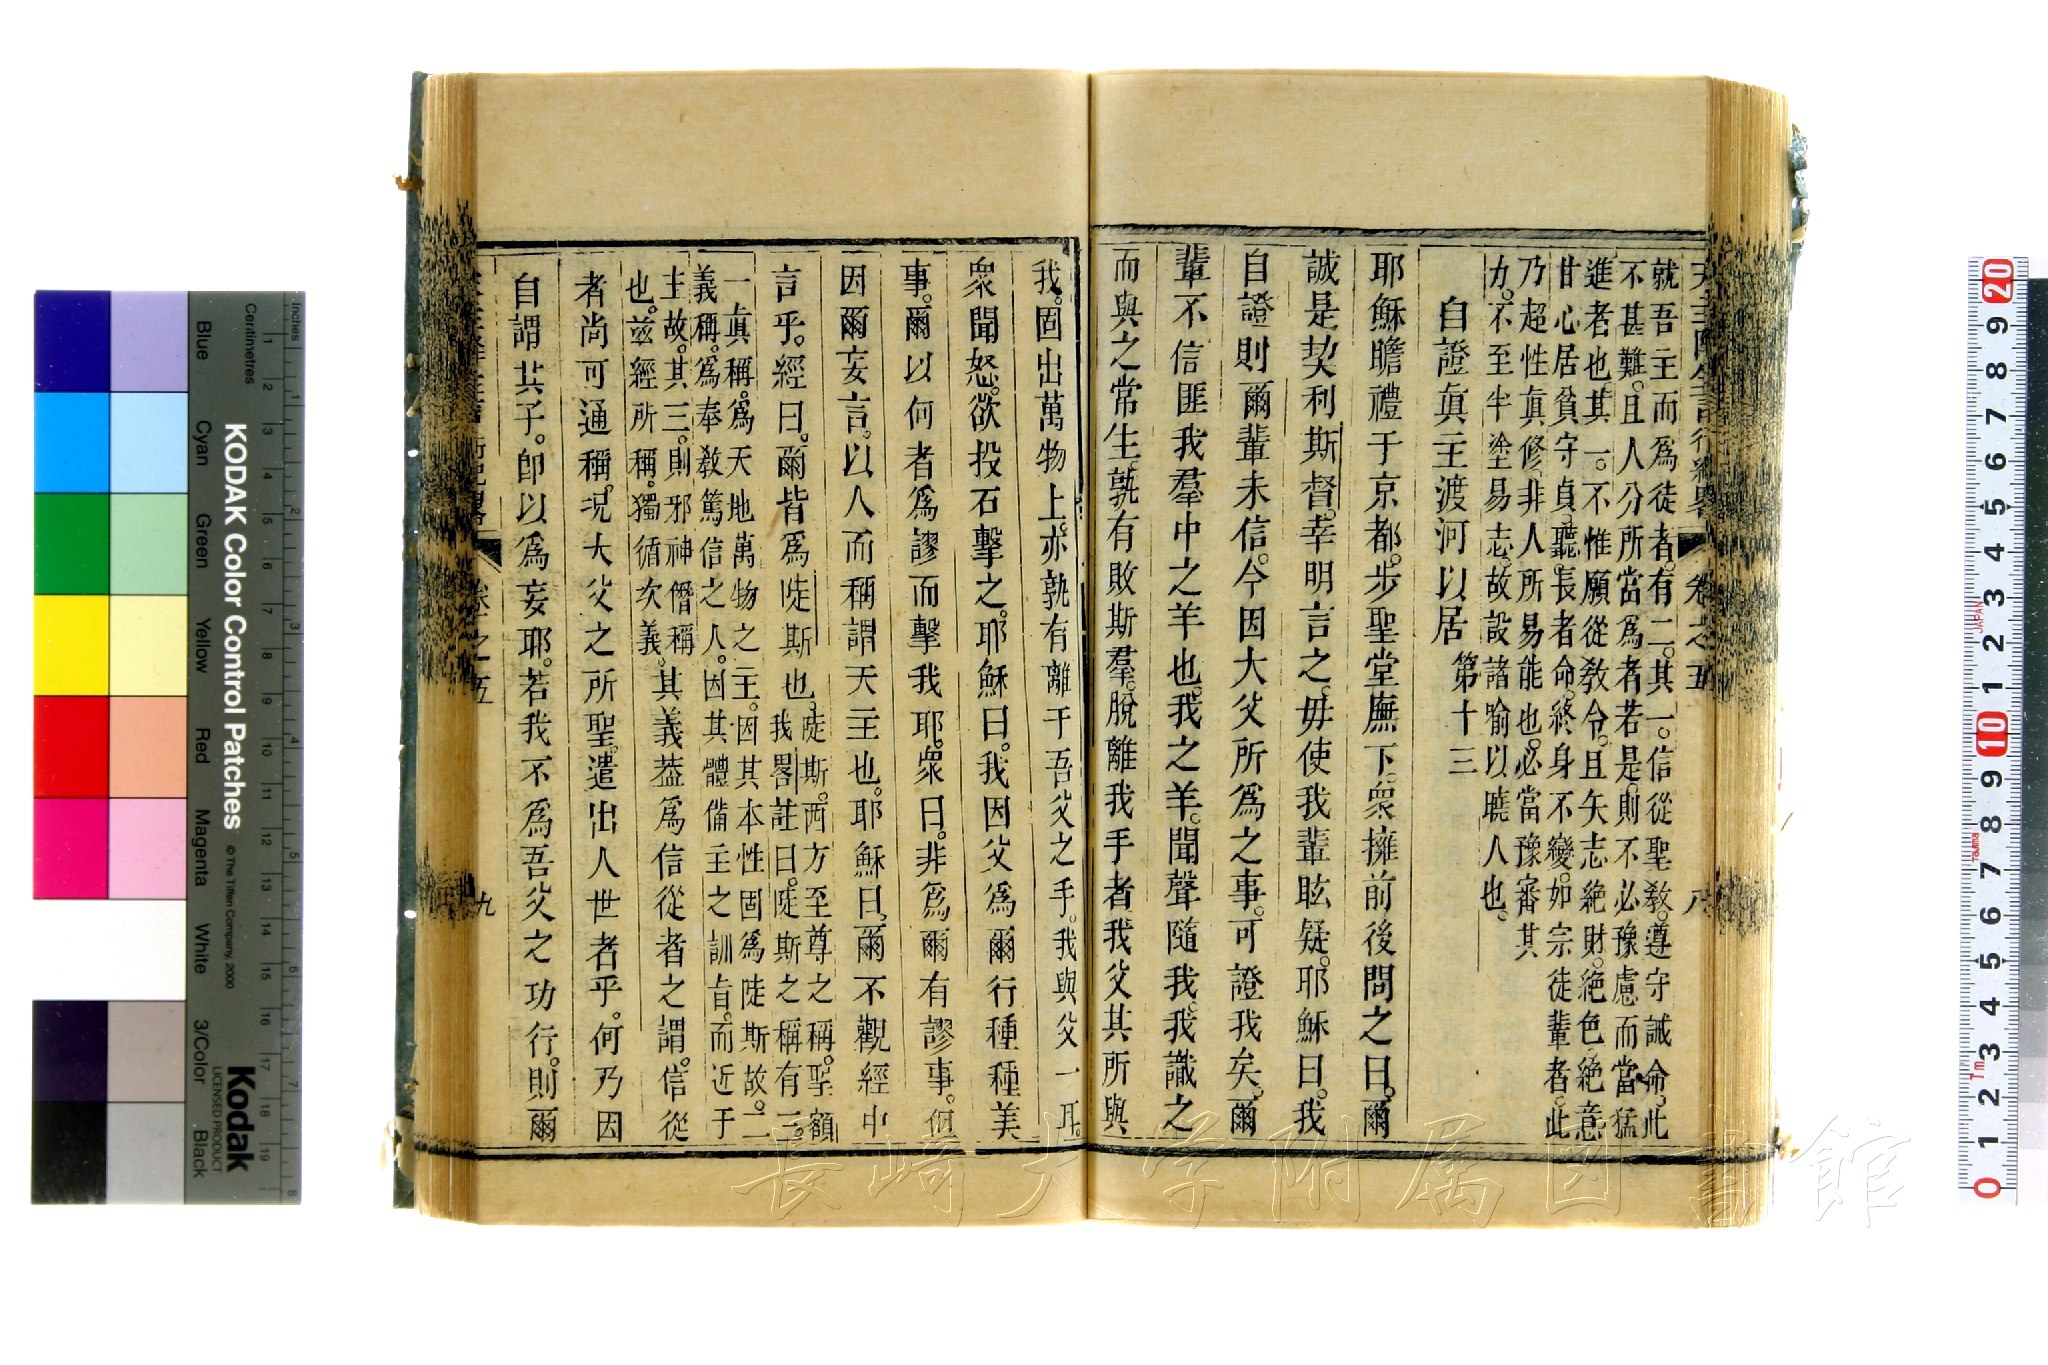 天主降生言行紀畧 卷之五 八
就吾主而爲徒者。有二。其一。信從聖敎。遵守誡命。此
不甚難。且人分所當爲者。若是。則不必豫慮而當猛
進者也。其一。不惟願從敎令。且矢志絶財。絶色。絶意
甘心居貧守貞。聽長者命。終身不變。如宗徒輩者。此
乃超性眞修。非人所易能也。必當豫審其
力。不至半塗易志。故設諸喻以曉人也。
自證眞主渡河以居 第十三
耶穌瞻禮于京都。步聖堂廡下。衆擁前後問之曰。爾
誠是契利斯督。幸明言之。毋使我輩眩疑。耶穌曰。我
自證則爾輩未信。今因大父所爲之事。可證我矣。爾
輩不信匪我羣中之羊也。我之羊。聞聲隨我。我識之
而與之常生。孰有敗斯羣。脫離我手者。我父其所與
我。固出萬物上。亦孰有離于吾父之手。我與父一耳。
衆聞怒。欲投石擊之。耶穌曰。我因父爲爾行種種美
事。爾以何者爲謬而擊我耶。衆曰。非爲爾有謬事。何
因爾妄言。以人而稱謂天主也。耶穌曰。爾不觀經中
言乎。經曰。爾皆爲陡斯也。
陡斯。西方至尊之稱。聖額
我畧註曰。陡斯之稱有三。
一眞稱。爲天地萬物之主。因其本性固爲陡斯故。二
義稱。爲奉敎篤信之人。因其體備主之訓旨。而近于
主故。其三。則邪神僭稱
也。玆經所稱。獨循次義。
其義葢爲信從者之謂。信從
者尚可通稱。況大父之所聖。遣出人世者乎。何乃因
自謂其子。卽以爲妄耶。若我不爲吾父之功行。則爾
天主降生言行紀畧 卷之五 九
長崎大学附属図書館
KODAK Color Control Patches
© The Tiffen Company, 2000
Kodak
LICENSED PRODUCT
Inches
Centimetres
Blue
Cyan
Green
Yellow
Red
Magenta
White
3/Color
Black